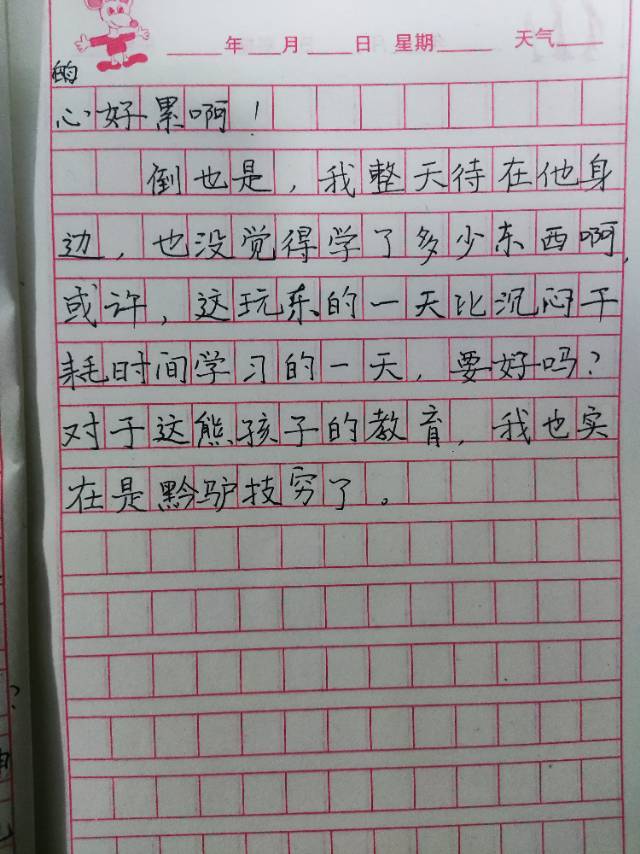 年 月 日 星期 天气
的
心好累啊！
倒也是，我整天待在他身
边，也没觉得学了多少东西啊，
或许，这玩乐的一天比沉闷干
耗时间学习的一天，要好吗？
对于这熊孩子的教育，我也实
在是黔驴技穷了。
？